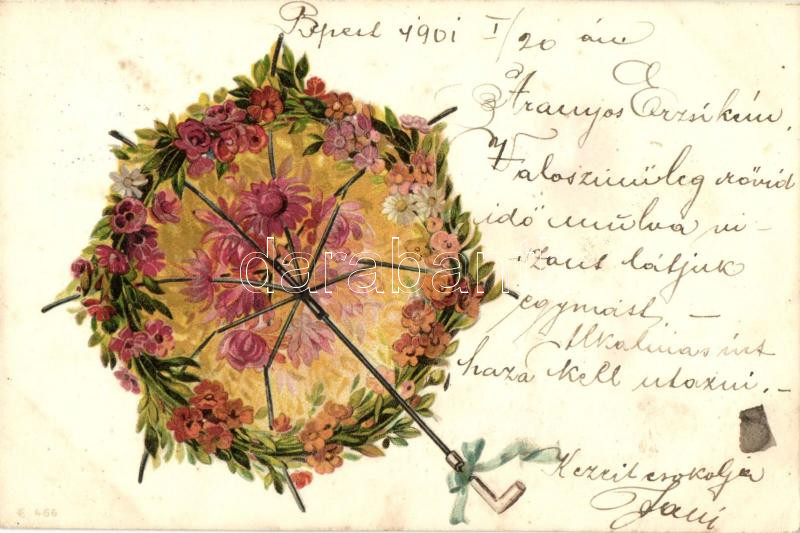 Bpest 1901 I/20 án
Aranyos Erzsikém,
Valoszinüleg rövid
idő mulva vi-
szont látjuk
egymást —
Alkalmasint
haza kell utazni. —
Kezeit csokolja
Jani
darabanth
466